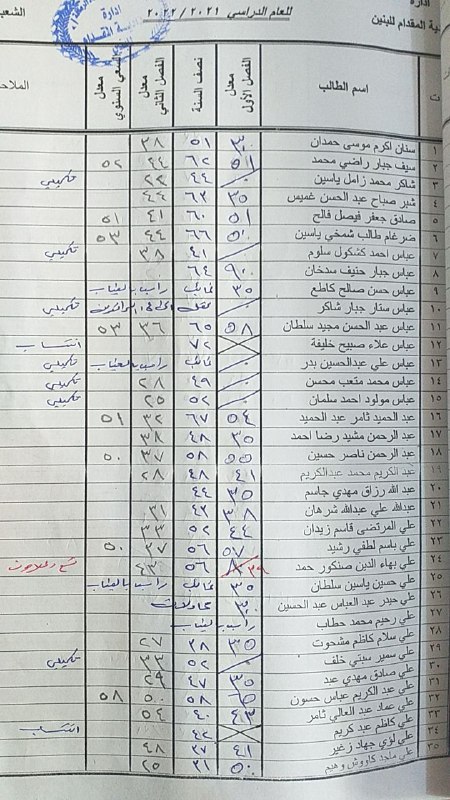 ادارة
ية المقدام للبنين
للعام الدراسي ٢٠٢١ / ٢٠٢٢
الشعب
ادارة
ت اسم الطالب معدل الفصل الأول نصف السنة معدل الفصل الثاني معدل السعي السنوي الملاح
١ سنان اكرم موسى حمدان ٣٠ ٥١ ٣٨
٢ سيف جبار راضي محمد ٥١ ٦٢ ٤٤ ٥٢
٣ شاكر محمد زامل ياسين ٤٤ ٢٢ تكميلي
٤ شبر صباح عبد الحسن غميس ٣٥ ٦٣ ٤٤
٥ صادق جعفر فيصل فالح ٥١ ٦٠ ٤١ ٥١
٦ ضرغام طالب شمخي ياسين ٥٠ ٦٦ ٤٤ ٥٣
٧ عباس احمد كشكول سلوم ٤١ ٣٨ تكميلي
٨ عباس جبار حنيف سدخان ٩٠ ٦٤
٩ عباس حسن صالح كاطع ٣٥ غائب راسب بالغياب
١٠ عباس ستار جبار شاكر تكميلي
١١ عباس عبد الحسن مجيد سلطان ٥٨ ٦٥ ٣٦ ٥٣
١٢ عباس علاء صبيح خليفة ٧٢ انتساب
١٣ عباس علي عبدالحسين بدر غائب راسب بالغياب تكميلي
١٤ عباس محمد متعب محسن ٤٩ ٢٨ تكميلي
١٥ عباس مولود احمد سلمان ٥٢ ٢٥ تكميلي
١٦ عبد الحميد ثامر عبد الحميد ٥٤ ٦٧ ٣٢ ٥١
١٧ عبد الرحمن مشيد رضا احمد ٣٥ ٤٨ ٣٨
١٨ عبد الرحمن ناصر حسين ٥٥ ٥٨ ٣٧ ٥٠
١٩ عبد الكريم محمد عبدالكريم ٤١ ٤٨ ٢٨
٢٠ عبد الله رزاق مهدي جاسم ٣٥ ٤٤
٢١ عبدالله علي عبدالله شرهان ٣٨ ٤٣ ٣١
٢٢ علي المرتضى قاسم زيدان ٤٤ ٥٢ ٣٣
٢٣ علي باسم لطفي رشيد ٥٧ ٥٦ ٣٧ ٥٠
٢٤ علي بهاء الدين صنكور حمد ٣٩ ٥٦ ٤٣
٢٥ علي حسين ياسين سلطان ٣٥ غائب راسب بالغياب
٢٦ علي حيدر عبد العباس عبد الحسين ٣٠
٢٧ علي رحيم محمد حطاب راسب بالغياب
٢٨ علي سلام كاظم مشحوت ٣٥ ٣٨ ٢٧
٢٩ علي سمير سبتي خلف ٥٢ ٣٣ تكميلي
٣٠ علي صادق مهدي عبد ٣٥ ٤٧ ٢٩
٣١ علي عبد الكريم عباس حسون ٦٥ ٥٨ ٥٠ ٥٨
٣٢ علي عماد عبد العالي ثامر ٤٣ ٤٠ ٥٤
٣٣ علي كاظم عبد كريم ٤٢ انتساب
٣٤ علي لؤي جهاد زغير ٤١ ٣٧ ٤٨
٣٥ علي ماجد كاووش وهيم ٥٠ ٣١ ٢٥